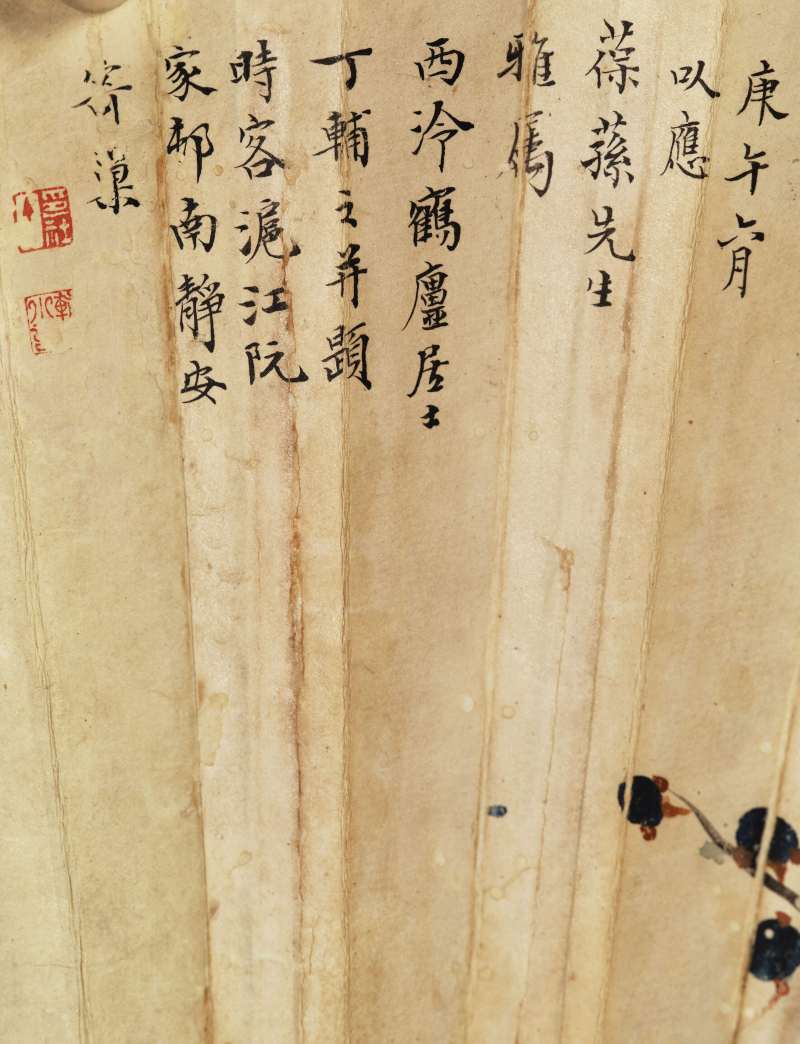 庚午六月
以應
葆蓀先生
雅属
西泠鶴廬居士
丁輔之并題
時客滬江阮
家邨南靜安
寄巢